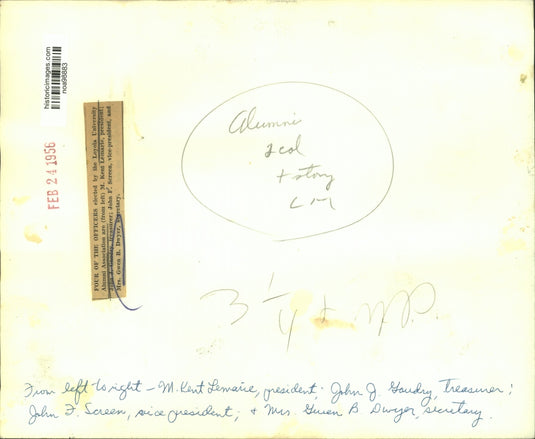 historicimages.com
noa98883
FEB 24 1956
FOUR OF THE OFFICERS elected by the Loyola University
Alumni Association are (from left) M. Kent Lemarie, president;
John J. Gaudry, treasurer; John F. Screen, vice-president, and
Mrs. Gwen B. Dwyer, secretary.
Alumni
2 col
+ story
L M
From left to right - M. Kent Lemarie, president; John J. Gaudry, Treasurer;
John F. Screen, vice president; & Mrs. Gwen B Dwyer, secretary.